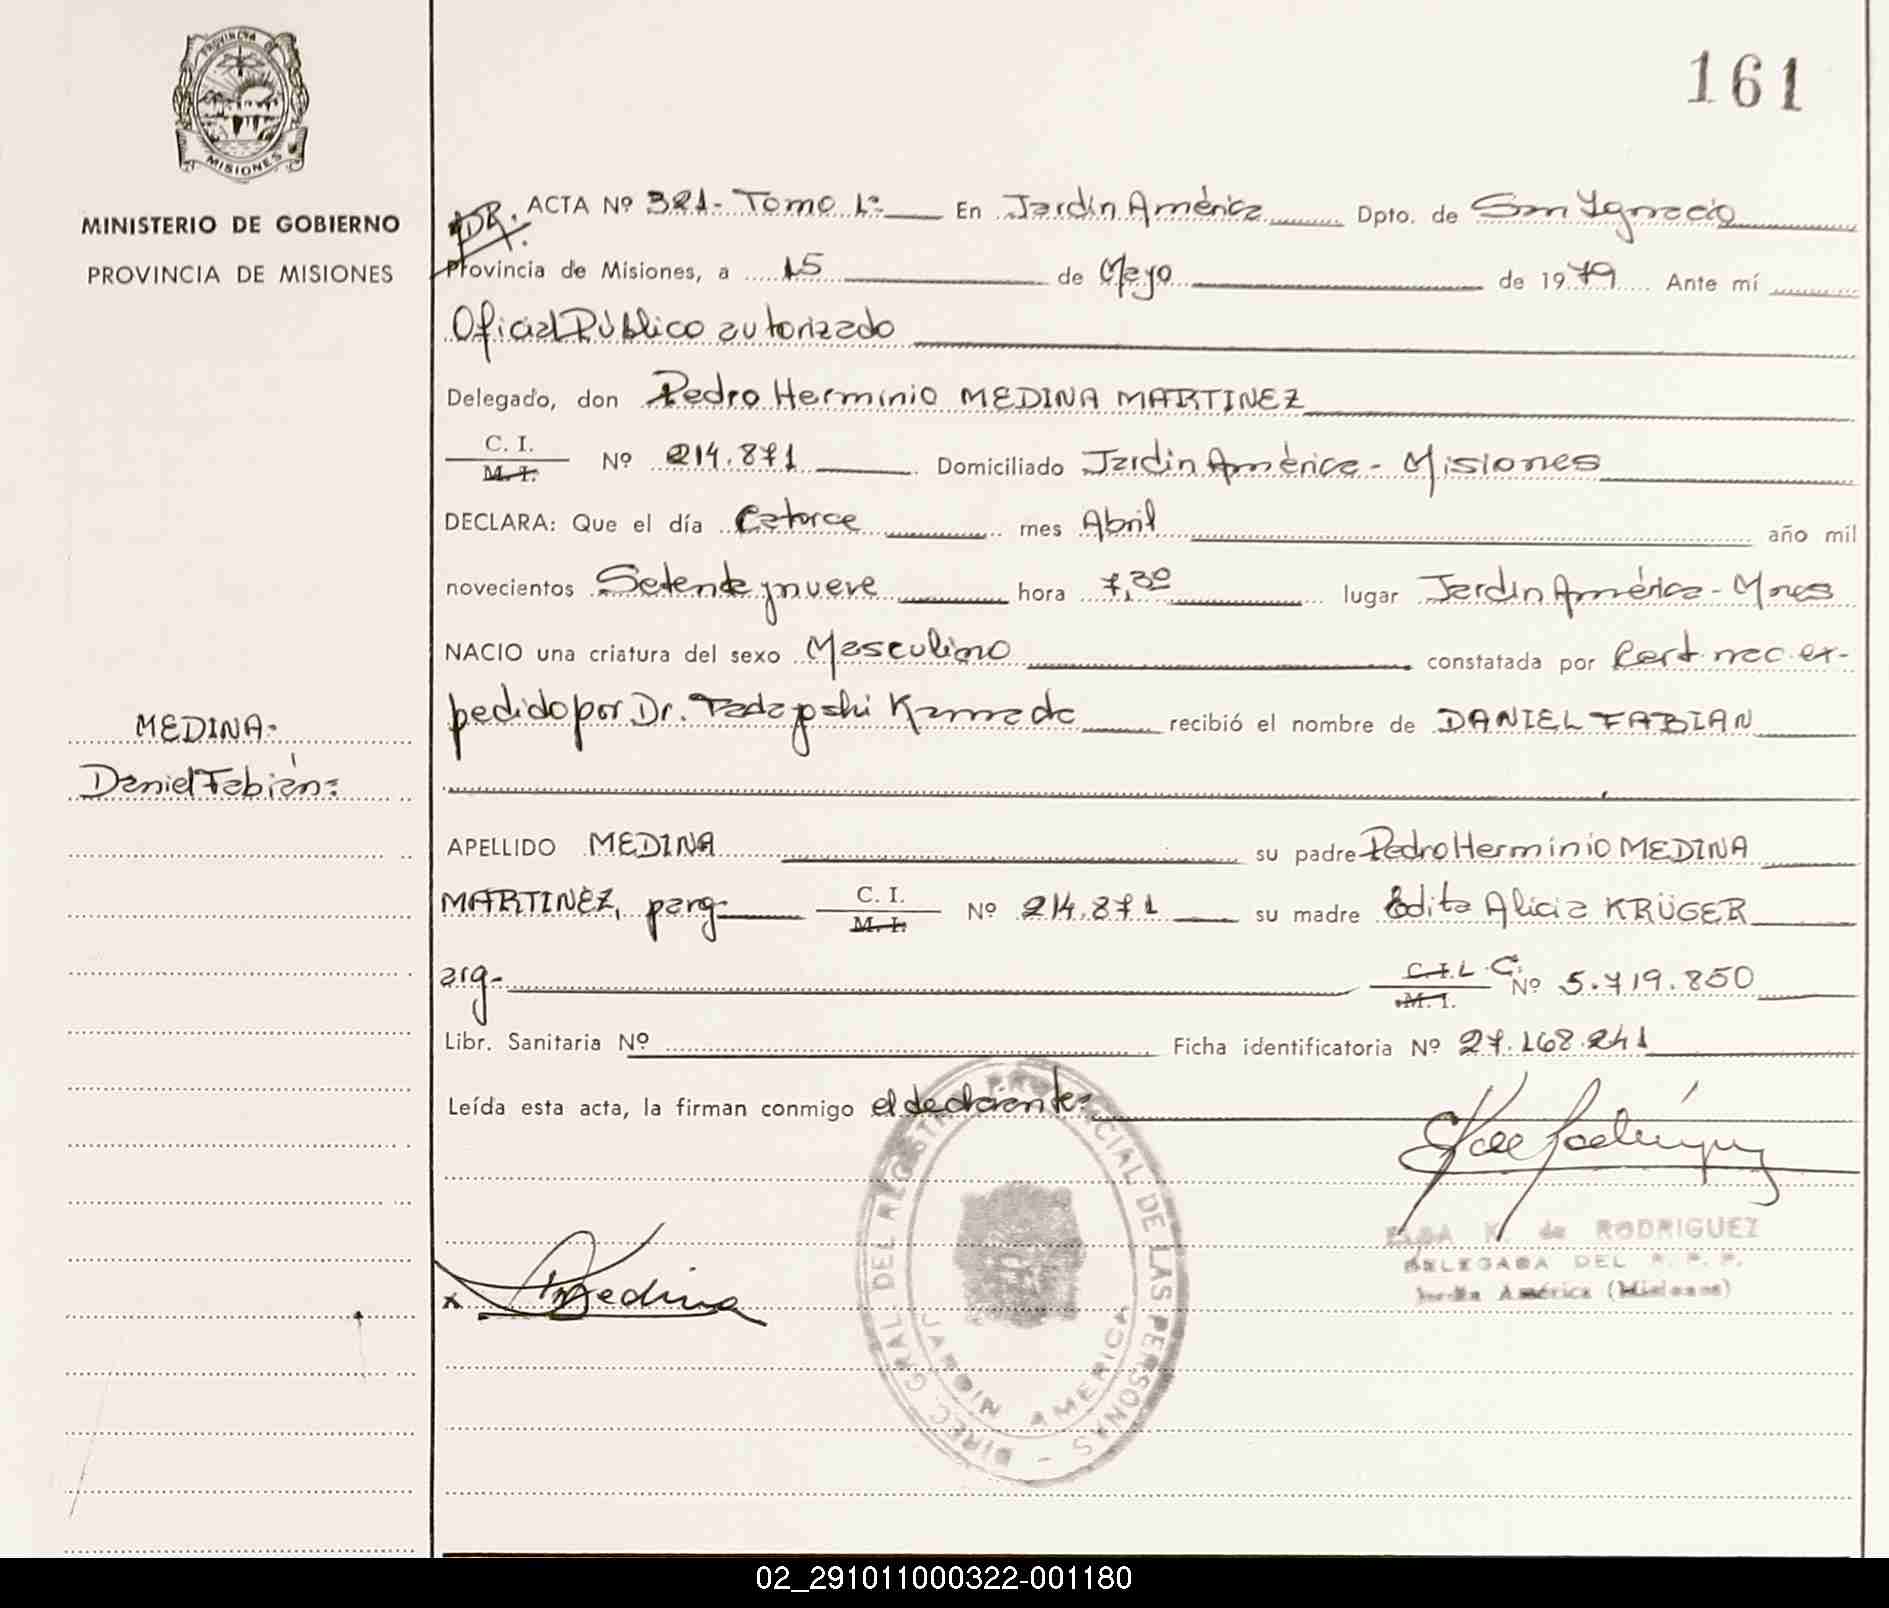 161
PROVINCIA DE
MISIONES
MINISTERIO DE GOBIERNO
PROVINCIA DE MISIONES
DR. ACTA Nº 321- Tomo 1º En Jardín América Dpto. de San Ignacio
Provincia de Misiones, a 15 de Mayo de 1979 Ante mí
Oficial Público autorizado
Delegado, don Pedro Herminio MEDINA MARTINEZ
C. I.
M. I. Nº 214.871 Domiciliado Jardin América - Misiones
DECLARA: Que el día Catorce mes Abril año mil
novecientos Setenta y nueve hora 7,30 lugar Jardin América - Mnes
NACIO una criatura del sexo Masculino constatada por Cert. nac. ex-
pedido por Dr. Tadayoshi Kamada recibió el nombre de DANIEL FABIAN
MEDINA-
Daniel Fabián=
APELLIDO MEDINA su padre Pedro Herminio MEDINA
MARTINEZ, parg- C. I.
M. I. Nº 214.871 su madre Edita Alicia KRÜGER
arg- C. I. L. C.
M. I. Nº 5.719.850
Libr. Sanitaria Nº Ficha identificatoria Nº 27.168.241
Leída esta acta, la firman conmigo el declarante=
x Medina
DIREC. GRAL. DEL REGISTRO PROVINCIAL DE LAS PERSONAS -
JARDIN AMERICA
ELSA K de RODRIGUEZ
DELEGADA DEL R. P. P.
Jardín América (Misiones)
02_291011000322-001180